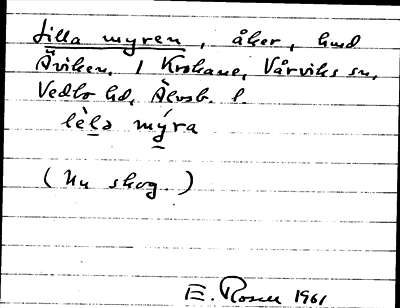 Lilla myren, åker, hmd
Äviken, 1 Krokane, Vårviks sn,
Vedbo hd, Älvsb. l.
lèlə mýra
(Nu skog)
E. Rosell 1961